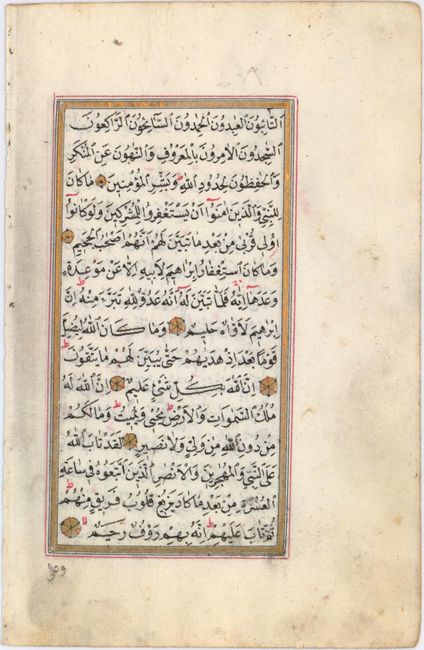 التَّائِبُونَ الْعَابِدُونَ الْحَامِدُونَ السَّائِحُونَ الرَّاكِعُونَ
السَّٰجِدُونَ الْاٰمِرُونَ بِالْمَعْرُوفِ وَالنَّاهُونَ عَنِ الْمُنْكَرِ
وَالْحَافِظُونَ لِحُدُودِ اللّٰهِ وَبَشِّرِ الْمُؤْمِنِينَ مَا كَانَ
لِلنَّبِيِّ وَالَّذِينَ اٰمَنُوا اَنْ يَسْتَغْفِرُوا لِلْمُشْرِكِينَ وَلَوْ كَانُوا
اُولِي قُرْبٰى مِنْ بَعْدِ مَا تَبَيَّنَ لَهُمْ اَنَّهُمْ اَصْحَابُ الْجَحِيمِ
وَمَا كَانَ اسْتِغْفَارُ اِبْرٰهِيمَ لِاَبِيهِ اِلَّا عَنْ مَوْعِدَةٍ
وَعَدَهَا اِيَّاهُ فَلَمَّا تَبَيَّنَ لَهُ اَنَّهُ عَدُوٌّ لِلّٰهِ تَبَرَّاَ مِنْهُ اِنَّ
اِبْرٰهِيمَ لَاَوَّاهٌ حَلِيمٌ وَمَا كَانَ اللّٰهُ لِيُضِلَّ
قَوْمًا بَعْدَ اِذْ هَدٰيهُمْ حَتّٰى يُبَيِّنَ لَهُمْ مَا يَتَّقُونَ
اِنَّ اللّٰهَ بِكُلِّ شَيْءٍ عَلِيمٌ اِنَّ اللّٰهَ لَهُ
مُلْكُ السَّمٰوَاتِ وَالْاَرْضِ يُحْيِي وَيُمِيتُ وَمَا لَكُمْ
مِنْ دُونِ اللّٰهِ مِنْ وَلِيٍّ وَلَا نَصِيرٍ لَقَدْ تَابَ اللّٰهُ
عَلَى النَّبِيِّ وَالْمُهَاجِرِينَ وَالْاَنْصَارِ الَّذِينَ اتَّبَعُوهُ فِي سَاعَةِ
الْعُسْرَةِ مِنْ بَعْدِ مَا كَادَ يَزِيغُ قُلُوبُ فَرِيقٍ مِنْهُمْ
ثُمَّ تَابَ عَلَيْهِمْ اِنَّهُ بِهِمْ رَؤُفٌ رَحِيمٌ
وعلى